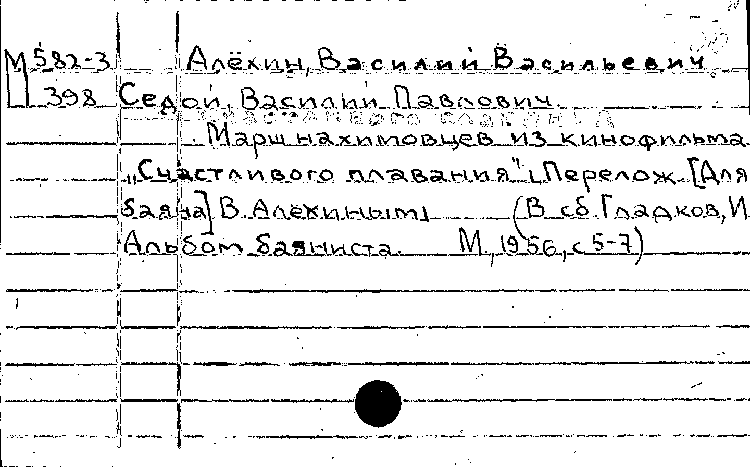 М 582-3 Алёхин, Василий Васильевич
398 Седой, Василий Павлович.
Марш нахимовцев из кинофильма
„Счастливого плавания". Перелож. [Для
баяна] В. Алёхиным. (В сб. Гладков, И
Альбом баяниста. М., 1956, с 5-7)